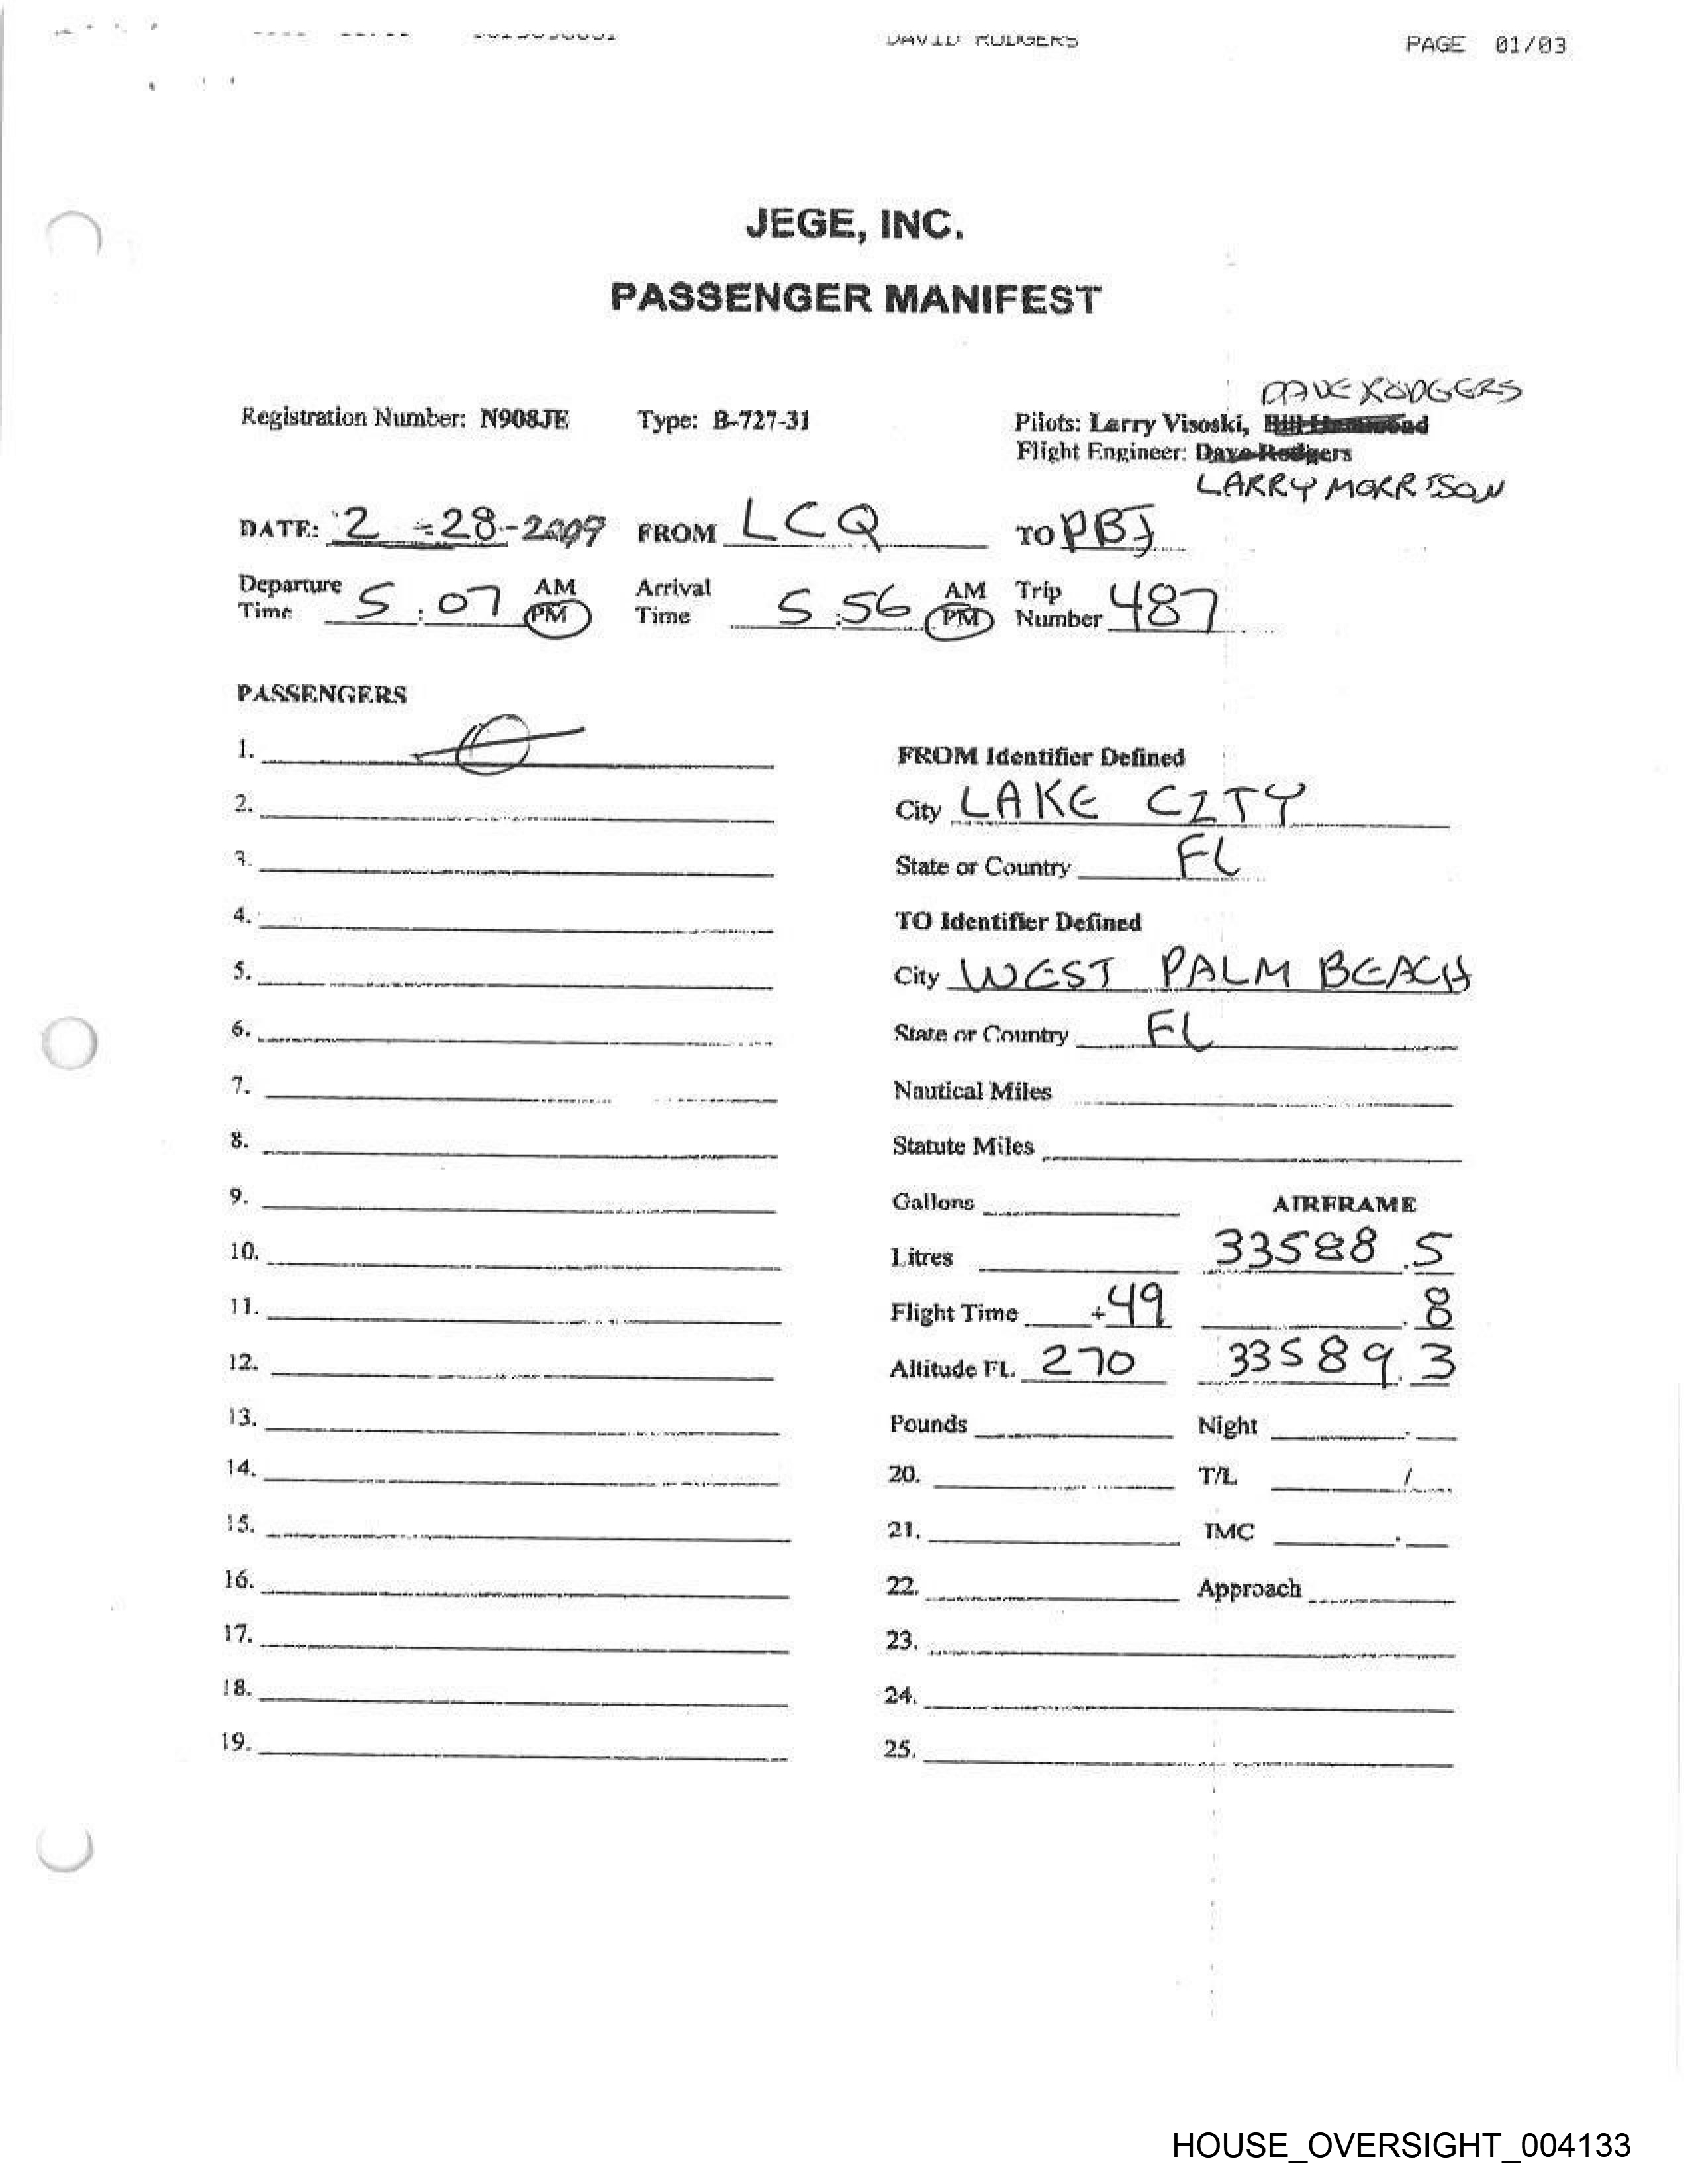 DAVID RODGERS PAGE 01/03
JEGE, INC.
PASSENGER MANIFEST
DAVE RODGERS
Registration Number: N908JE Type: B-727-31 Pilots: Larry Visoski,
Flight Engineer: Dave Rodgers
LARRY MORRISON
DATE: 2-28-2009 FROM LCQ TO PBI
Departure Time 5:07 AM PM Arrival Time 5:56 AM PM Trip Number 487
PASSENGERS
1.
2.
3.
4.
5.
6.
7.
8.
9.
10.
11.
12.
13.
14.
15.
16.
17.
18.
19.
FROM Identifier Defined
City LAKE CITY
State or Country FL
TO Identifier Defined
City WEST PALM BEACH
State or Country FL
Nautical Miles
Statute Miles
Gallons AIRFRAME
Litres 33588.5
Flight Time +49 .8
Altitude FL 270 33589.3
Pounds Night
20. T/L /
21. IMC .
22. Approach
23.
24.
25.
HOUSE_OVERSIGHT_004133